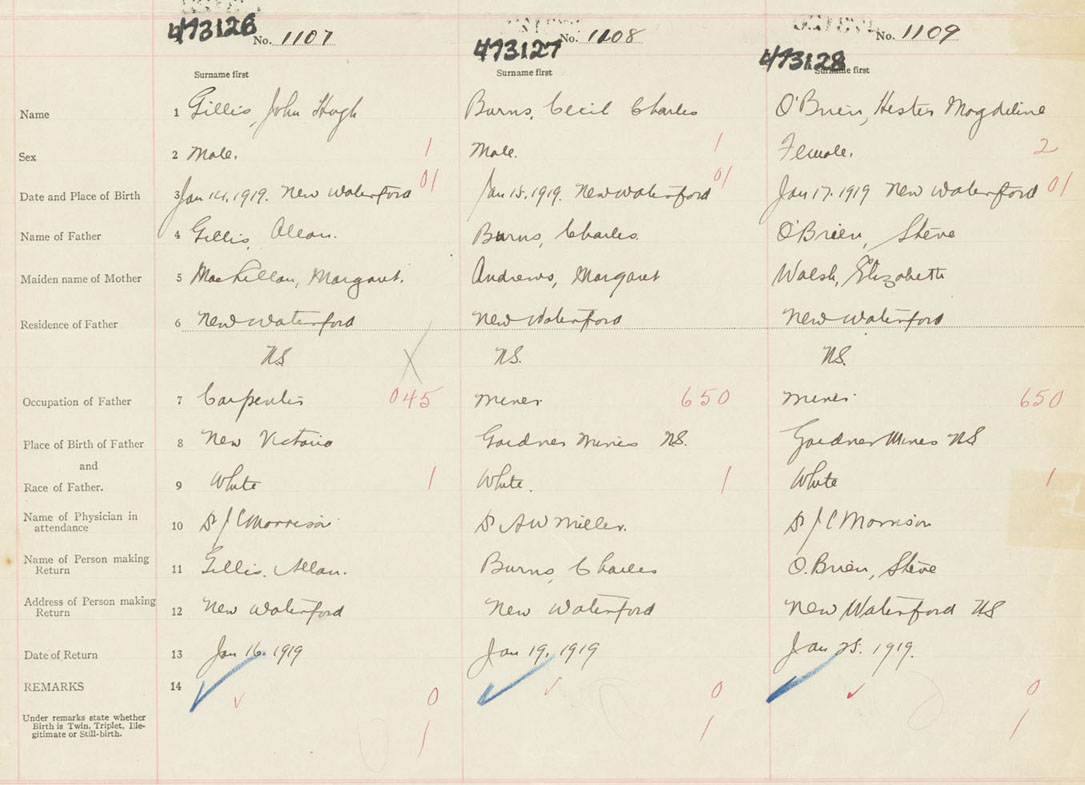 473126 No. 1107 473127 No. 1108 473128 No. 1109
Surname first Surname first Surname first
Name 1 Gillis, John Hugh Burns, Cecil Charles O'Brien, Hester Magdeline
Sex 2 Male. 1 Male. 1 Female. 2
Date and Place of Birth 3 Jan 14, 1919. New Waterford 01 Jan 15, 1919. New Waterford 01 Jan 17. 1919 New Waterford 01
Name of Father 4 Gillis, Allan. Burns, Charles. O'Brien, Steve
Maiden name of Mother 5 Margaret. Andrews, Margaret Walsh, Elizabeth
Residence of Father 6 New Waterford New Waterford New Waterford
NS NS. NS.
Occupation of Father 7 Carpenter 045 miner 650 miner 650
Place of Birth of Father 8 New Victoria Gardner Mines NS. Gardner Mines NS
and
Race of Father. 9 White 1 White. 1 White 1
Name of Physician in
attendance 10 Dr J C Morrison Dr A W Miller. Dr J C Morrison
Name of Person making
Return 11 Gillis, Allan. Burns, Charles O.Brien, Steve
Address of Person making
Return 12 New Waterford New Waterford New Waterford NS
Date of Return 13 Jan 16, 1919 Jan 19, 1919 Jan 25. 1919.
REMARKS 14 0 0 0
Under remarks state whether
Birth is Twin, Triplet, Ille-
gitimate or Still-birth. 1 1 1